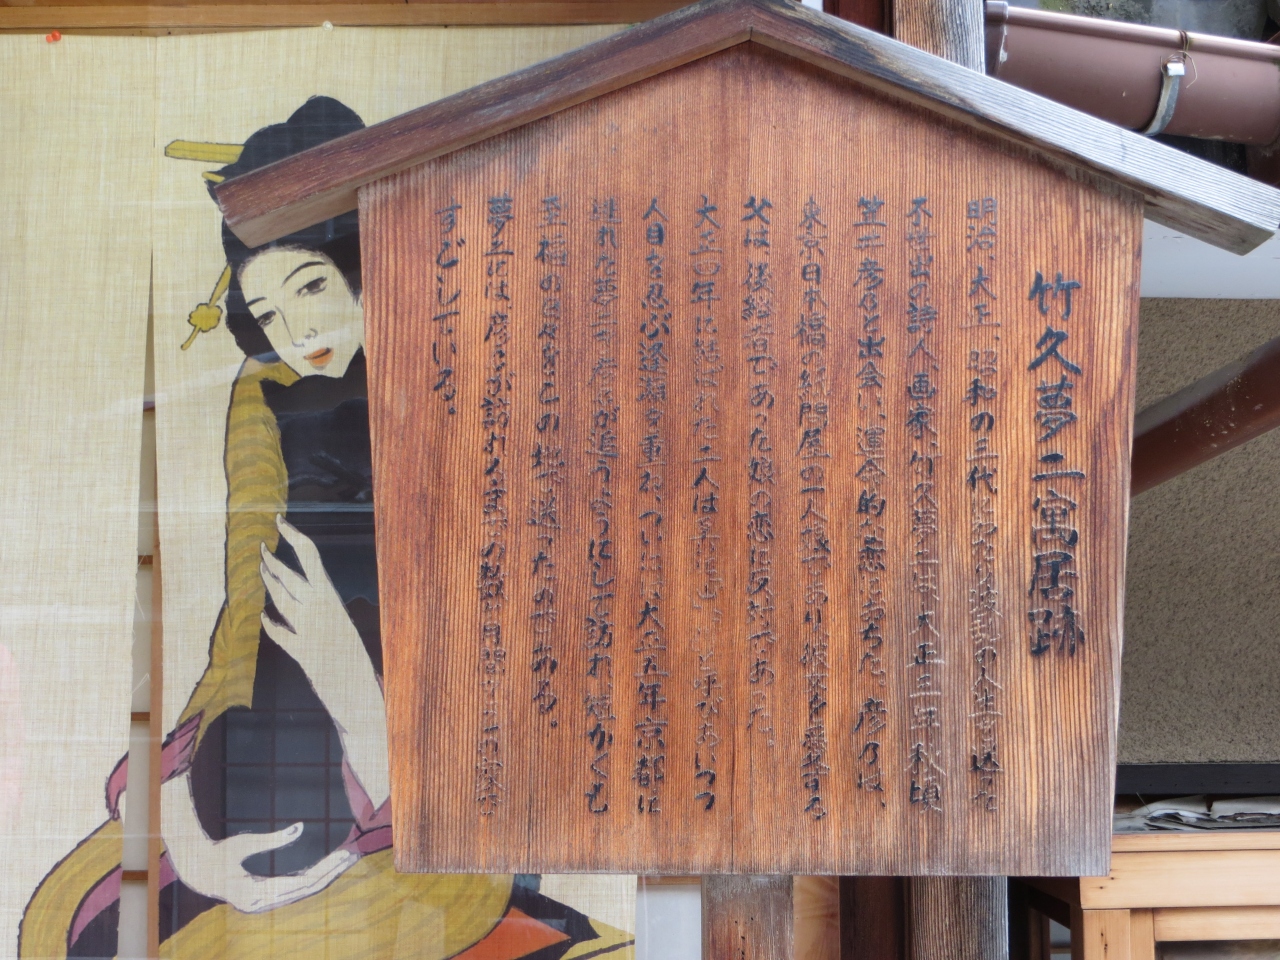 竹久夢二寓居跡
明治、大正、昭和の三代にわたり伝説の人生を送った
不世出の詩人画家、竹久夢二は、大正三年秋頃
笠井彦乃と出会い、運命的な恋におちた。彦乃は、
東京日本橋の紙問屋の一人娘であり彼女を愛する
父は後継者であった娘の恋に反対であった。
大正四年に結ばれた二人は と呼びあいつつ
人目を忍ぶ逢瀬を重ね、ついには大正五年京都に
逃れた夢二を彦乃が追うようにして訪れ、短かくも
至福の日々をこの地で送ったのである。
夢二は、彦乃が訪れるまでの数ヶ月間をこの家で
すごしている。